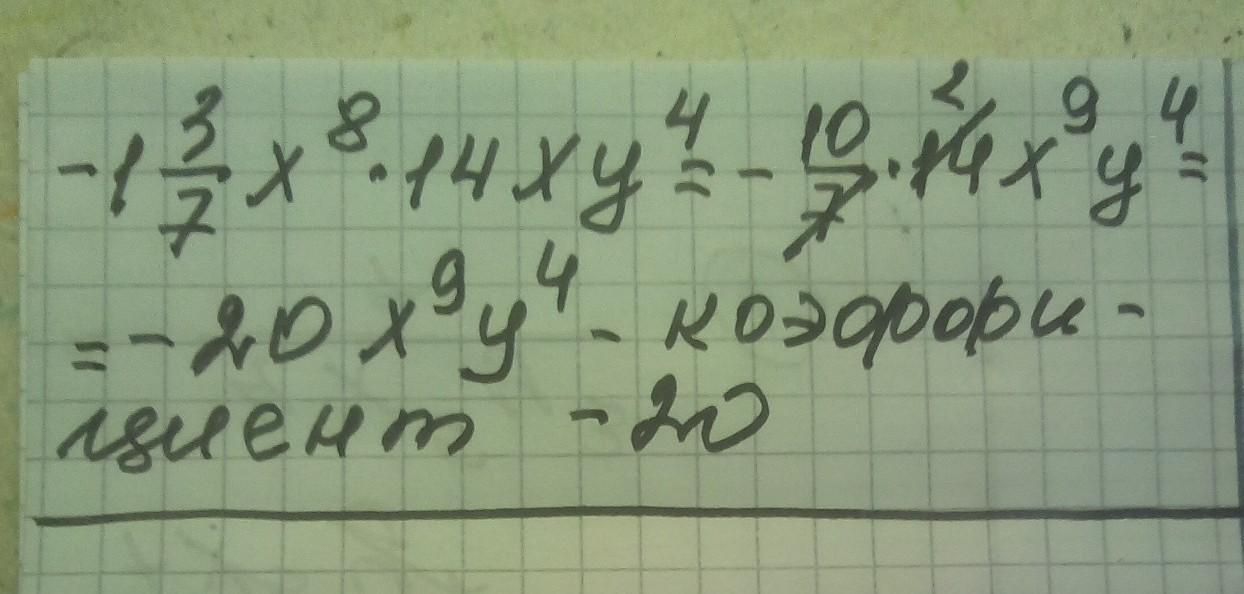 -1 3/7 x⁸ · 14xy⁴ = - 10/7 · 14 2 x⁹y⁴ =
= - 20 x⁹y⁴ - коэффи-
циент - 20